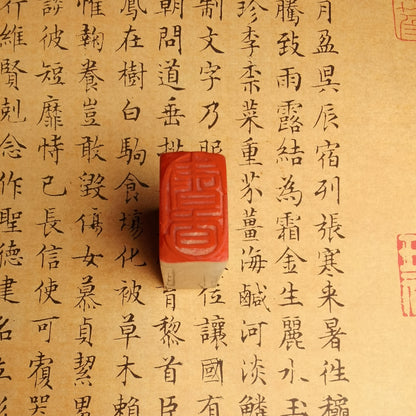 月盈昃辰宿列張寒來暑往
騰致雨露結為霜金生麗水玉
珍李柰菜重芥薑海鹹河淡鱗
制文字乃服位讓國有
朝問道垂拱育黎首臣
鳳在樹白駒食場化被草木賴
惟鞠養豈敢毀傷女慕貞潔男
談彼短靡恃己長信使可覆器
行維賢剋念作聖德建名立形